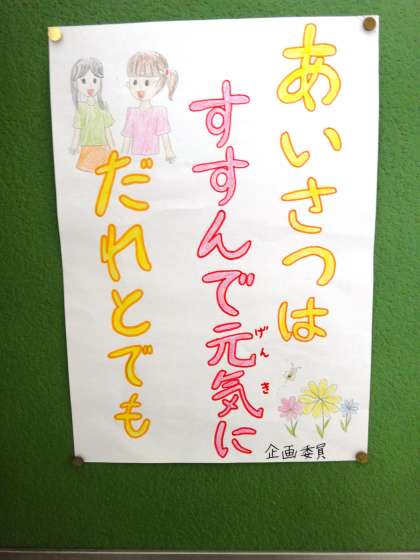 あいさつは
すすんで元気に
げんき
だれとでも
企画委員